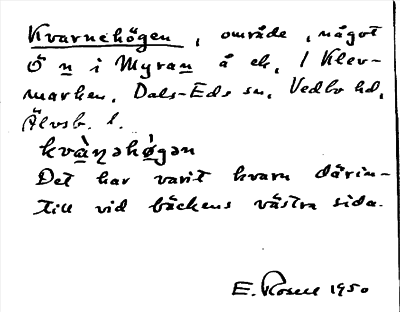 Kvarnehögen, område, något
Ö n i Myran å ek, 1 Klev-
marken, Dals-Eds sn, Vedbo hd,
Älvsb. l.
kvàṇəhø̀gən
Det har varit kvarn därin-
till vid bäckens västra sida.
E. Rosell 1950